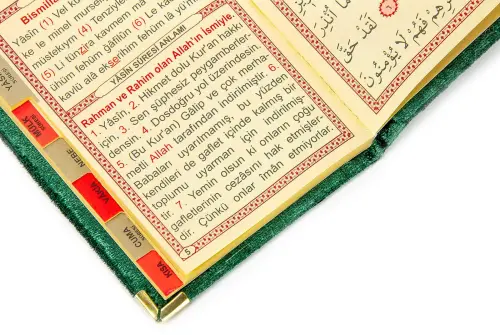 Yâsîn (1) Vel
ke le minel
(4)
(5) Li tünzira kavmem mâ
ühüm fehüm ğâfilûn (6) Le
kavlü alâ ekserihim fehüm lâ
YÂSÎN SÛRESİ ANLAMI
Rahman ve Rahim olan Allah'ın İsmiyle.
1. Yâsîn 2. Hikmet dolu Kur'an hakkı
için 3. Sen şüphesiz peygamberler-
densin. 4. Dosdoğru yol üzerindesin.
5. (Bu Kur'an) Gâlip ve çok merha-
metli Allah tarafından indirilmiştir. 6.
Babaları uyarılmamış, bu yüzden
kendileri de gaflet içinde kalmış bir
toplumu uyarman için indirilmiş-
tir. 7. Yemin olsun ki onların çoğu
gafletlerinin cezâsını hak etmişler-
dir. Çünkü onlar îmân etmiyorlar.
5
YÂSÎN
MÜLK
NEBE
VÂKIA
CUMA
KISA
لَقَدْ حَقَّ
فَهُمْ لَا يُؤْمِنُونَ